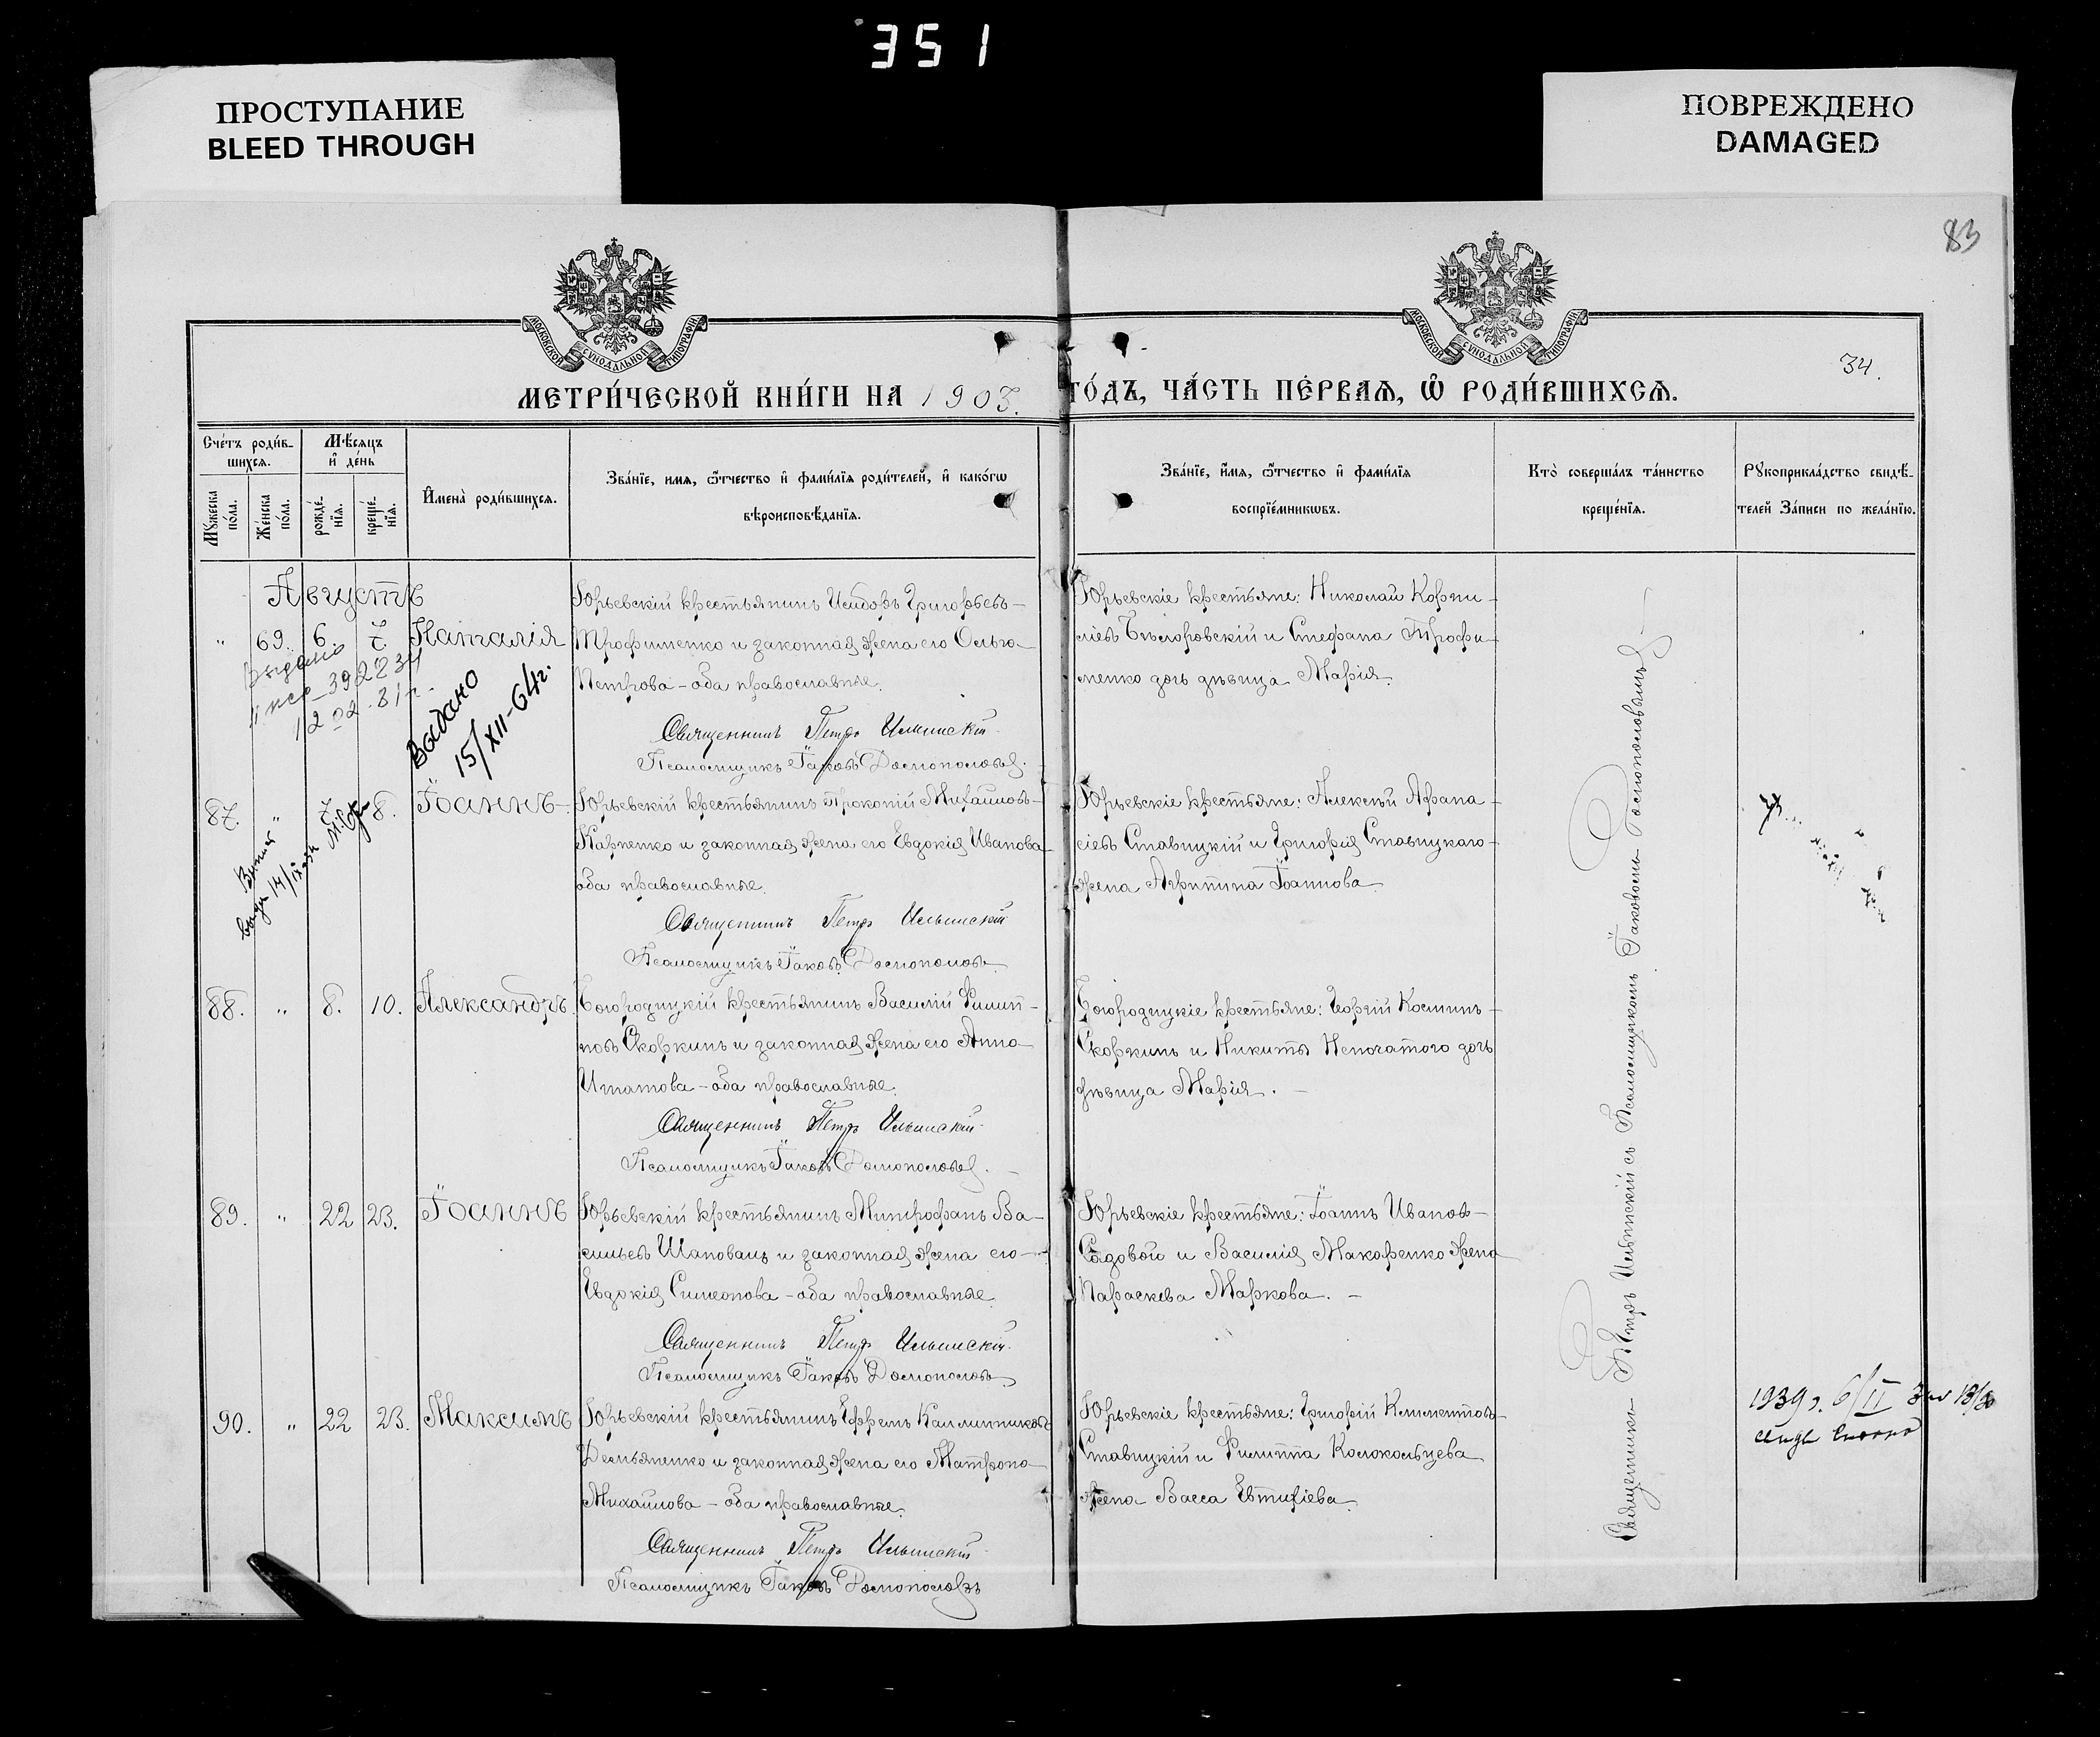 351
ПРОСТУПАНИЕ
BLEED THROUGH
ПОВРЕЖДЕНО
DAMAGED
83
МОСКОВСКОЙ СѴНОДАЛЬНОЙ ТИПОГРАФІИ
МОСКОВСКОЙ СѴНОДАЛЬНОЙ ТИПОГРАФІИ
34.
МЕТРИ́ЧЕСКОЙ КНИ́ГИ НА 1903. ГО́ДЪ, ЧА́СТЬ ПЕ́РВАѦ, Ѽ РОДИ́ВШИХСѦ.
Сче́тъ роди́в-
шихсѧ.
Мѣ́сѧцъ
и҆ де́нь
Мꙋ́жеска
по́ла.
Же́нска
по́ла.
рожде́-
нїѧ.
креще́-
нїѧ.
И҆мена̀ роди́вшихсѧ.
Зва́нїе, имѧ, ѻ҆́тчество и҆ фами́лїѧ роди́телей, и҆ како́гѡ
вѣроисповѣ́данїѧ.
Зва́нїе, и҆́мѧ, ѻ҆́тчество и҆ фами́лїѧ
воспрїе́мникѡвъ.
Кто̀ соверша́лъ та́инство
креще́нїѧ.
Рꙋкоприкла́дство свидѣ́-
телей За́писи по жела́нїю.
Августъ
" 69. 6. 7. Наталія
Юрьевскій крестьянинъ Исидоръ Григорьевъ-
Трофименко и законная жена его Ольга
Петрова - оба православные.
Священникъ Петръ Ильинскій
Псаломщикъ Іаковъ Досмопословъ.
Юрьевскіе крестьяне: Николай Корни-
ліевъ Бѣлоровскій и Стефана Трофи-
менко дочь дѣвица Марія.
выдано
392234
12 02. 81 г.
Выдано
15/XII-64г.
87. " 7. 8. Іоаннъ-
Юрьевскій крестьянинъ Прокопій Михаиловъ-
Карпенко и законная жена его Евдокія Иванова
оба православные.
Священникъ Петръ Ильинскій
Псаломщикъ Іаковъ Досмопословъ
Юрьевскіе крестьяне: Алексѣй Афана-
сіевъ Ставицкій и Григорія Ставицкаго-
жена Агрипина Іоаннова.
88. " 8. 10. Александръ.
Богородицкій крестьянинъ Василій Филип-
повъ Скоркинъ и законная жена его Анна
Ипатова - оба православные.
Священникъ Петръ Ильинскій
Псаломщикъ Іаковъ Досмопословъ.
Богородицкіе крестьяне: Георгій Косминъ-
Скоркинъ и Никиты Непочатого дочь
дѣвица Марія. -
89. " 22 23. Іоаннъ
Юрьевскій крестьянинъ Митрофанъ Ва-
сильевъ Шаповалъ и законная жена его-
Евдокія Симеонова - оба православные
Священникъ Петръ Ильинскій.
Псаломщикъ Іаковъ Досмопословъ
Юрьевскіе крестьяне: Іоаннъ Ивановъ-
Садовой и Василія Макаренко жена
Параскева Маркова. -
90. " 22 23. Максимъ
Юрьевскій крестьянинъ Ефремъ Каллиниковъ
Демьяненко и законная жена его Матрона
Михаилова - оба православные.
Священникъ Петръ Ильинскій
Псаломщикъ Іаковъ Досмопословъ
Юрьевскіе крестьяне: Григорій Климентовъ-
Ставицкій и Филиппа Колокольцева
жена Васса Евтихіева.
Священникъ Петръ Ильинскій съ Псаломщикомъ Іаковомъ Досмопословымъ
1939 г. 6/II